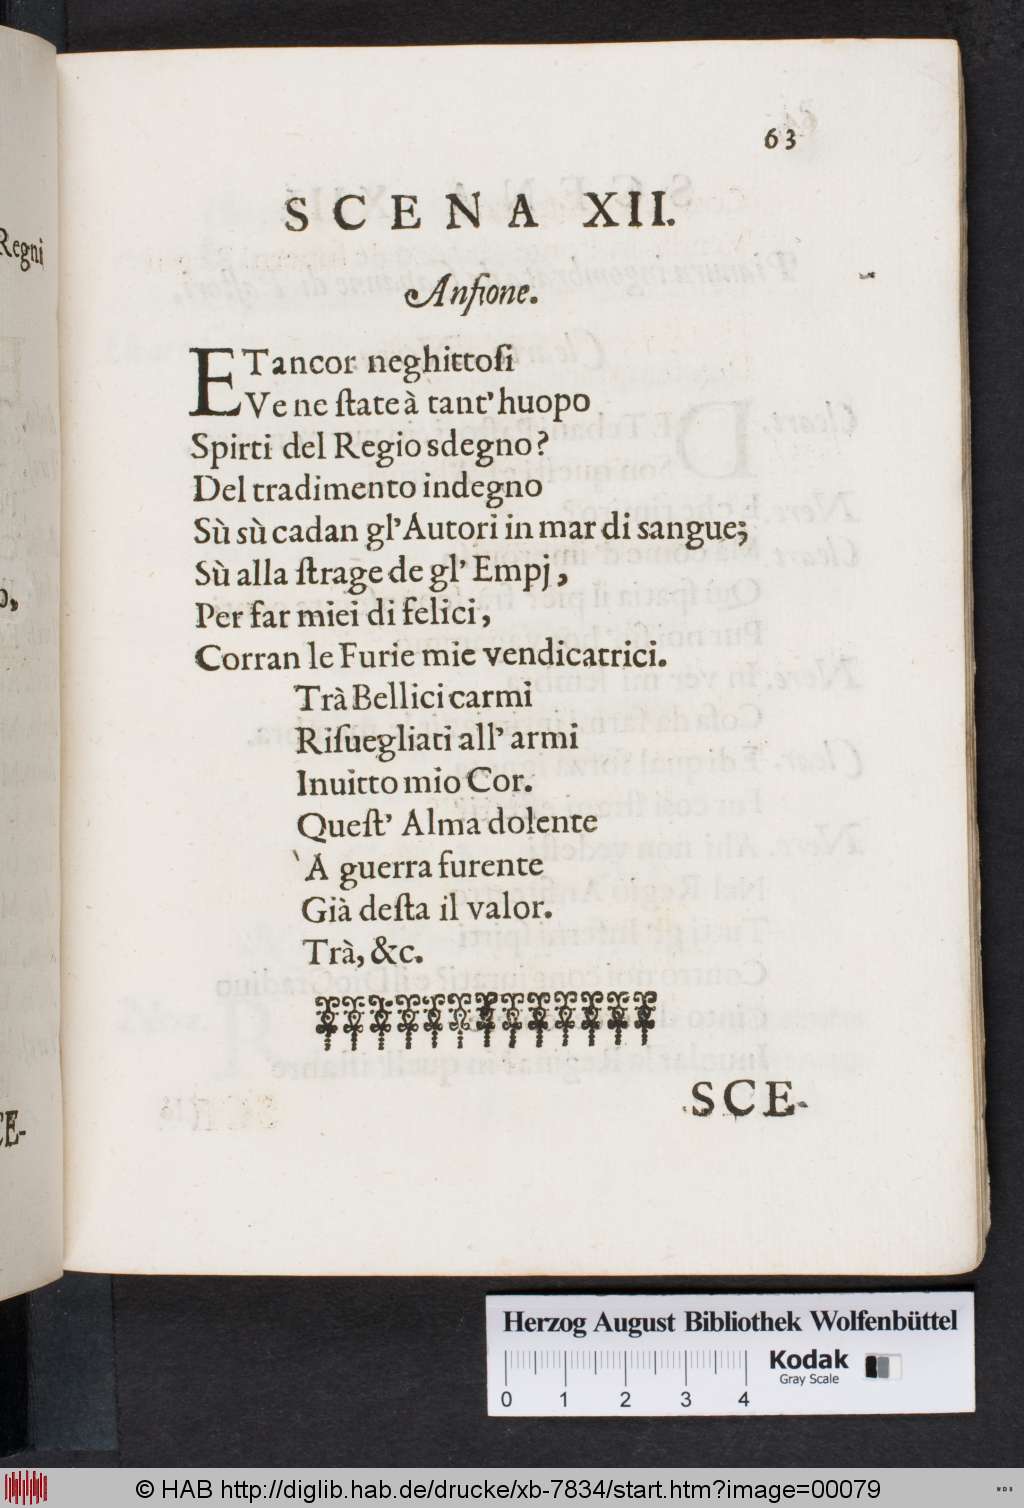 63
SCENA XII.
Regni
Anfione.
ETancor neghittoſi
Ve ne ſtate à tant' huopo
Spirti del Regio sdegno?
Del tradimento indegno
Sù sù cadan gl'Autori in mar di sangue;
Sù alla ſtrage de gl' Empj,
Per far miei di felici,
Corran le Furie mie vendicatrici.
Trà Bellici carmi
Riſuegliati all' armi
Inuitto mio Cor.
Queſt' Alma dolente
`A guerra furente
Già deſta il valor.
Trà, &c.
SCE-
CE-
Herzog August Bibliothek Wolfenbüttel
Kodak
Gray Scale
0 1 2 3 4
© HAB http://diglib.hab.de/drucke/xb-7834/start.htm?image=00079